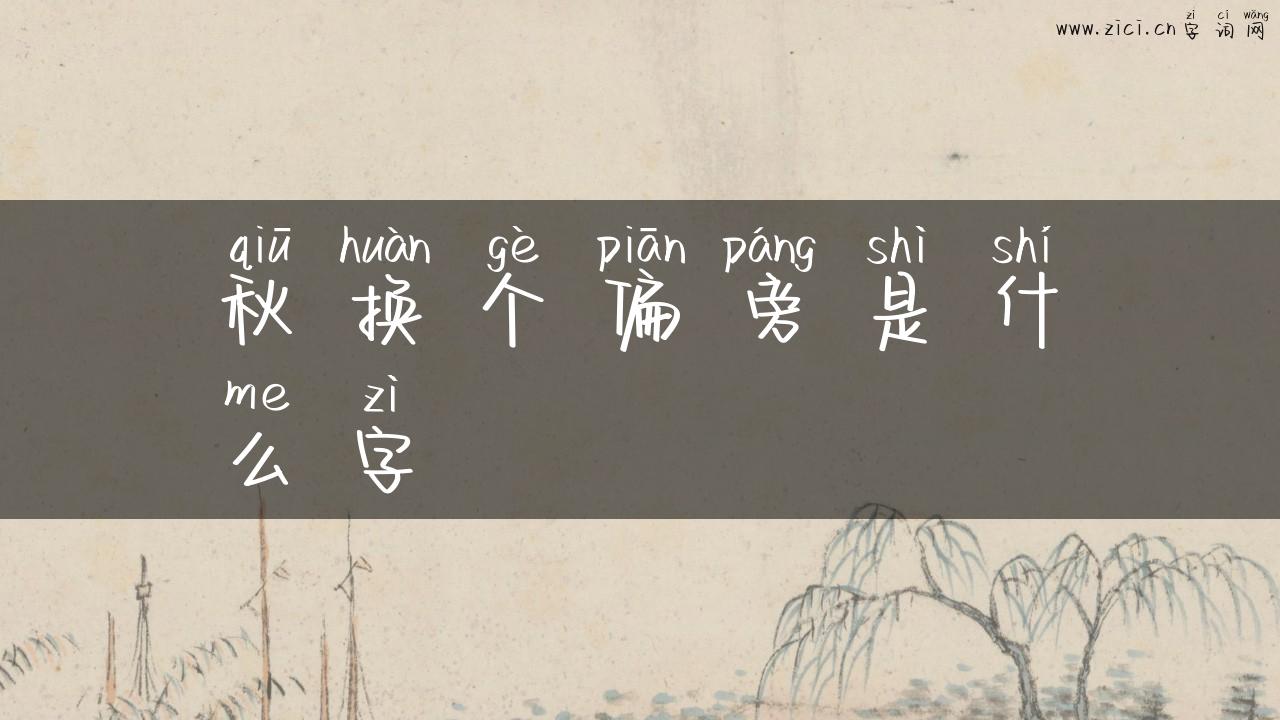 zì cí wǎng
www.zici.cn 字 词 网
qiū huàn gè piān páng shì shí
秋 换 个 偏 旁 是 什
me zì
么 字